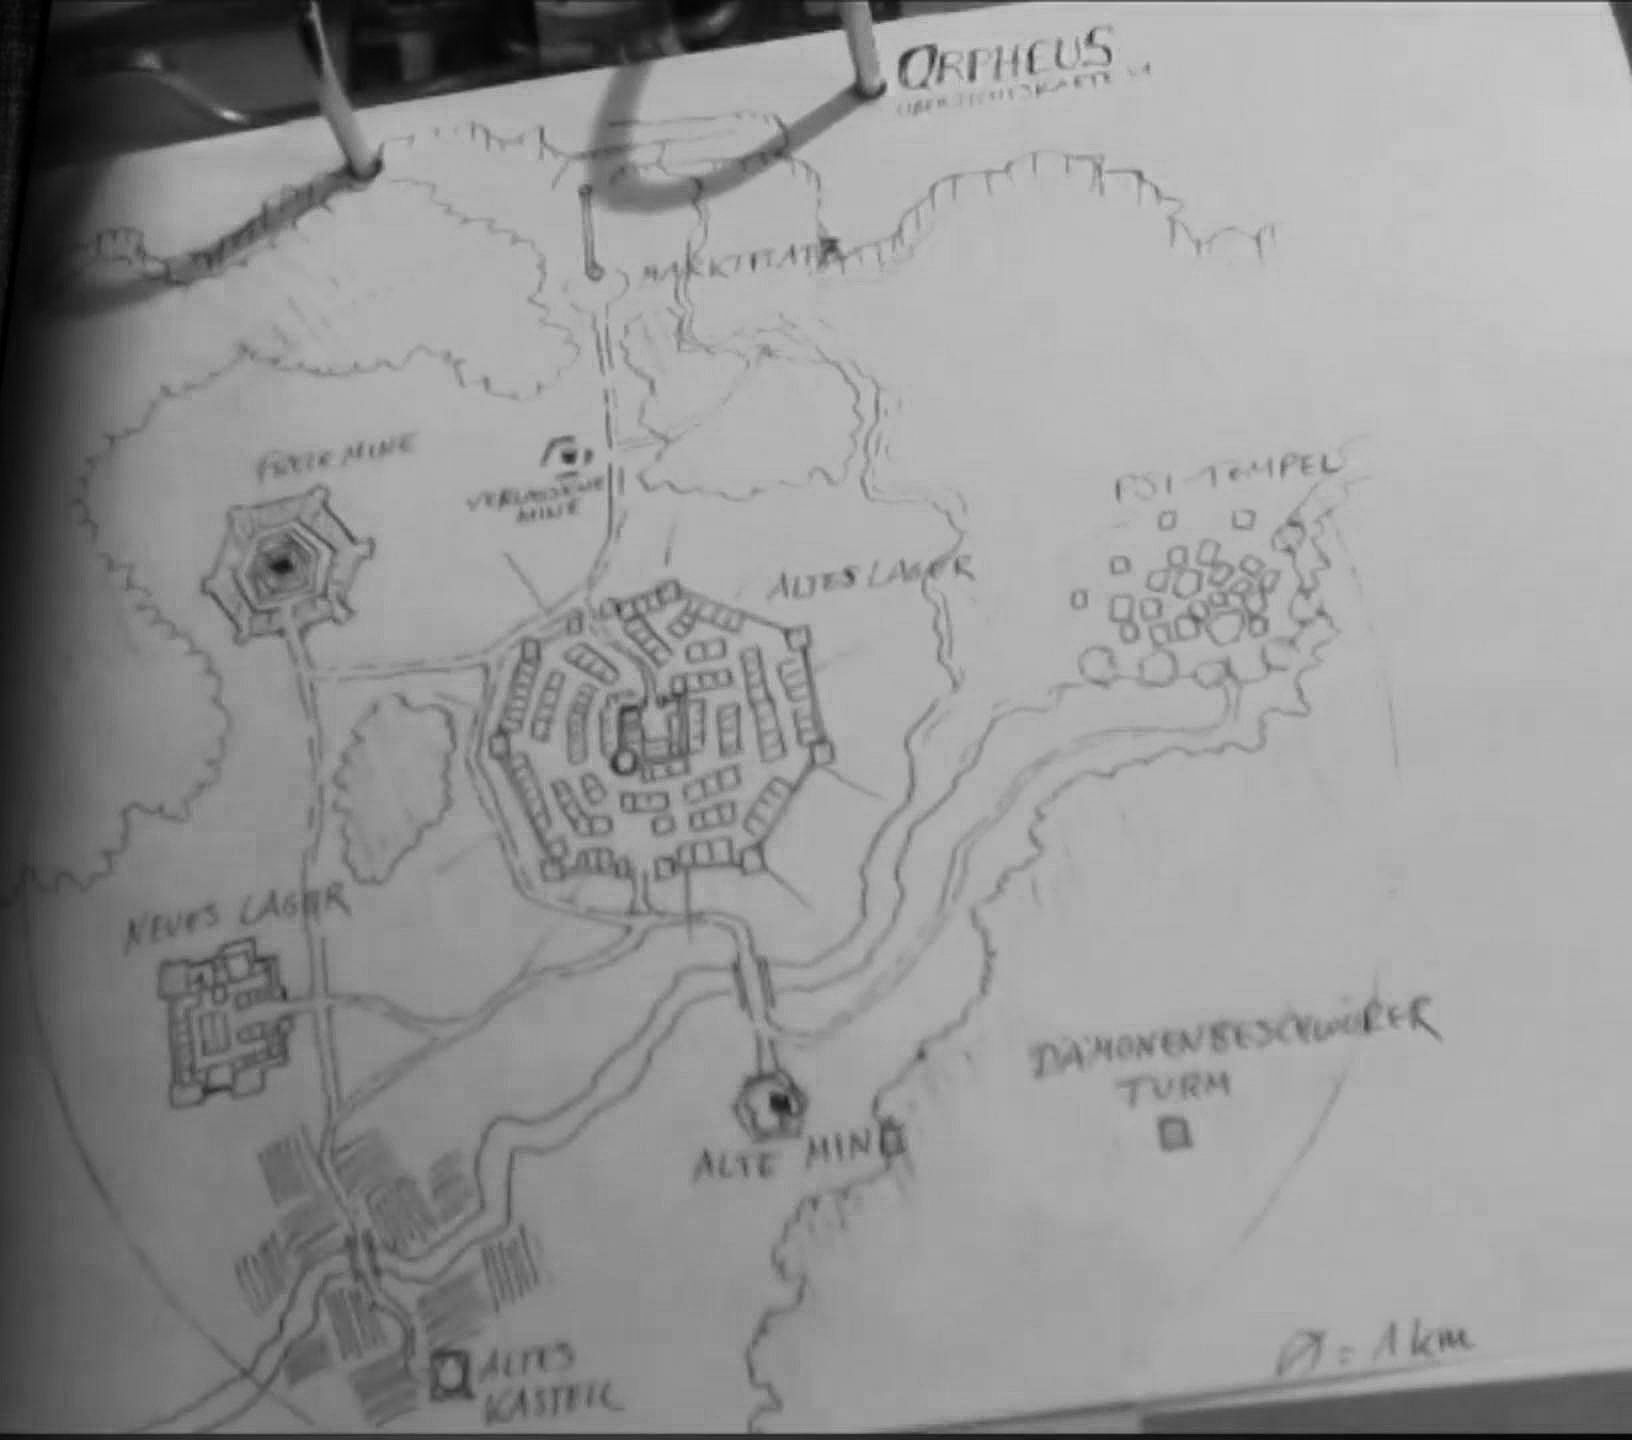 ORPHEUS
ÜBERSICHTSKARTE V1
MARKTPLATZ
FREIE MINE
VERLASSENE
MINE
PSI-TEMPEL
ALTES LAGER
NEUES LAGER
DÄMONENBESCHWÖRER
TURM
ALTE MINE
ALTES
KASTELL
Ø = 1 km